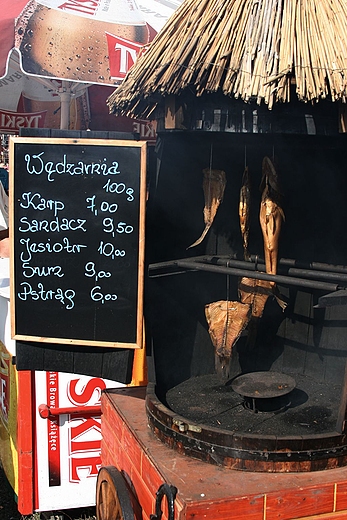 TY
TYSKI
Wędzarnia
100g
Karp 7,00
Sandacz 9,50
Jesiotr 10,00
Sum 9,00
Pstrąg 6,00
SKIE